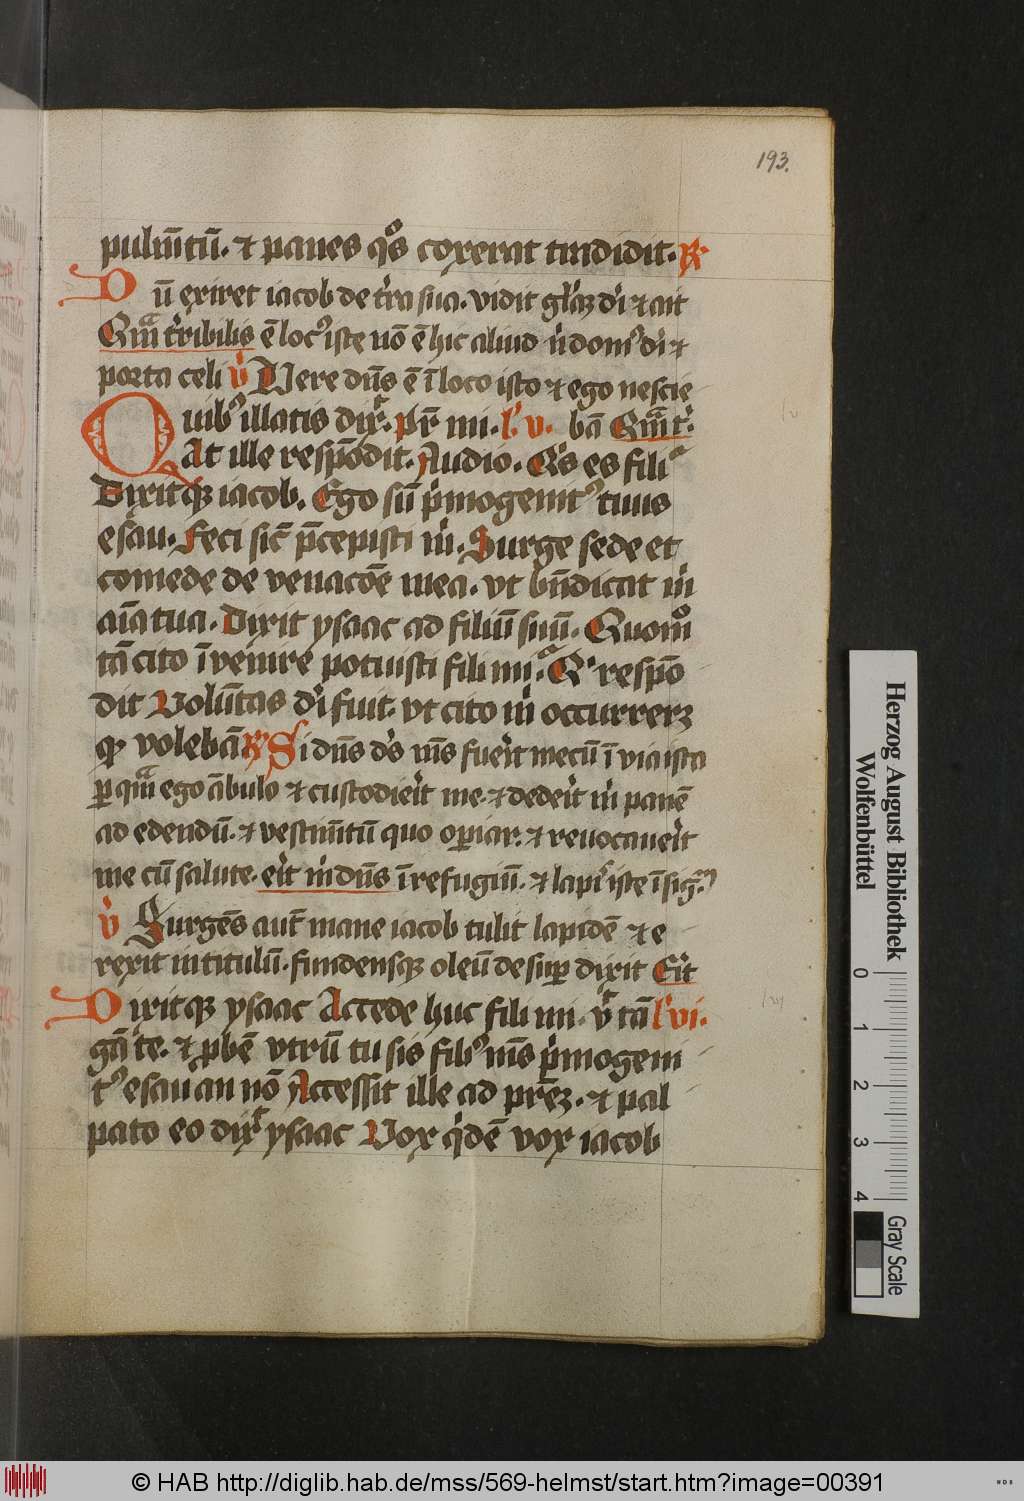 193.
pulme̅tu̅. ⁊ panes qͦs coxerat tradidit. ℟
Du̅ exiret iacob de t̓ra sua. vidit gl̓iaʒ di̓ ⁊ ait
Qm̅ t̓ribilis e̅ locꝰ iste no̅ e̅ hic aliud n̓ domꝰ di̓ ⁊
porta celi v̓ Vere dn̅s e̅ i̅ loco isto ⁊ ego nescie
Quibꝰ illatis dix̓. pr̅ mi. l̓ v. ba̅ Qm̅ t̓.
At ille respo̅dit. Audio. Q̓s es fili
Dixitqʒ iacob. Ego su̅ p̓mogenitꝰ tuus
esau. Feci sic̅ p̅cepisti m̓. Surge sede et
comede de venaco̅e mea. vt bn̅dicat m̓
ai̅a tua. Dixit ysaac ad filiu̅ suu̅. Quomͦ
ta̅ cito i̅venire potuisti fili mi. Qͥ respo̅
dit Volu̅tas di̓ fuit. vt cito m̓ occurreʒ
qͩ voleba̅ ℟ Si dn̅s ds̓ m̅s fu̓it mecu̅ i̅ via ista
ꝑ qua̅ ego a̅bulo ⁊ custodi̓it me. ⁊ ded̓it m̓ pane̅
ad edendu̅. ⁊ vestime̅tu̅ quo operiar. ⁊ reuocau̓it
me cu̅ salute. e̓it m̓ dn̅s i̅ refugiu̅. ⁊ lapis iste i̅ sig̅
v̓ Surge̅s aut̅ mane iacob tulit lapide̅ ⁊ e
rexit in titulu̅. fundensqʒ oleu̅ desuꝑ dixit E̓it
Dixitqʒ ysaac Accede huc fili mi. vt ta̅ l̓ vi.
ga̅ te. ⁊ ꝓbe̅ vtru̅ tu sis filiꝰ m̅s p̓mogeni
tꝰ esau an no̅ Accessit ille ad pr̅eʒ. ⁊ pal
pato eo dix̓ ysaac Vox q̓de̅ vox iacob
Herzog August Bibliothek
Wolfenbüttel
0 1 2 3 4
Gray Scale
© HAB http://diglib.hab.de/mss/569-helmst/start.htm?image=00391